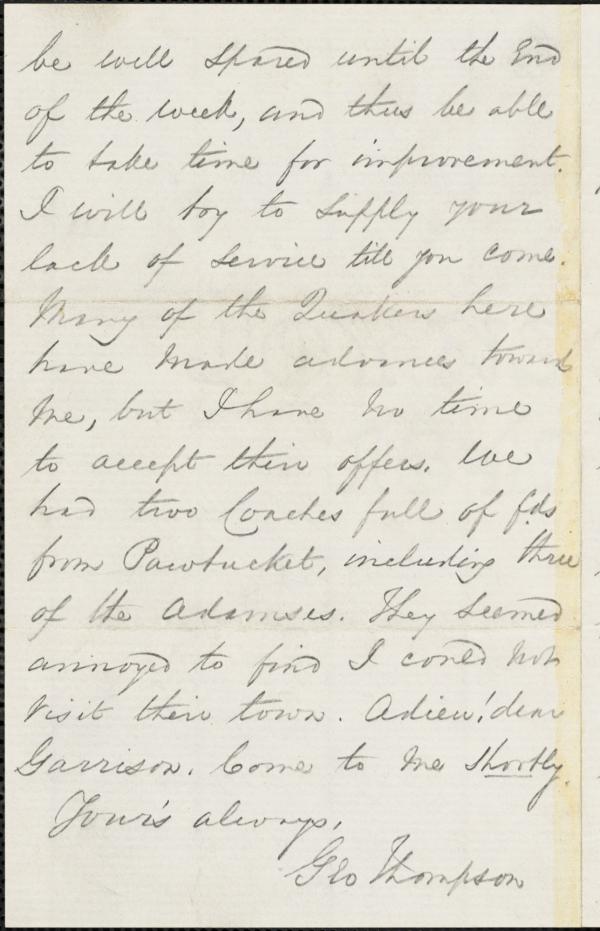 be well spared until the End
of the week, and thus be able
to take time for improvement.
I will try to supply your
lack of service till you come.
Many of the Quakers here
have made advances toward
me, but I have no time
to accept their offers. We
had two Coaches full of fds
from Pawtucket, including three
of the Adamses. They seemed
annoyed to find I could not
visit their town. Adieu! dear
Garrison. Come to me shortly.
Your's always,
Geo Thompson